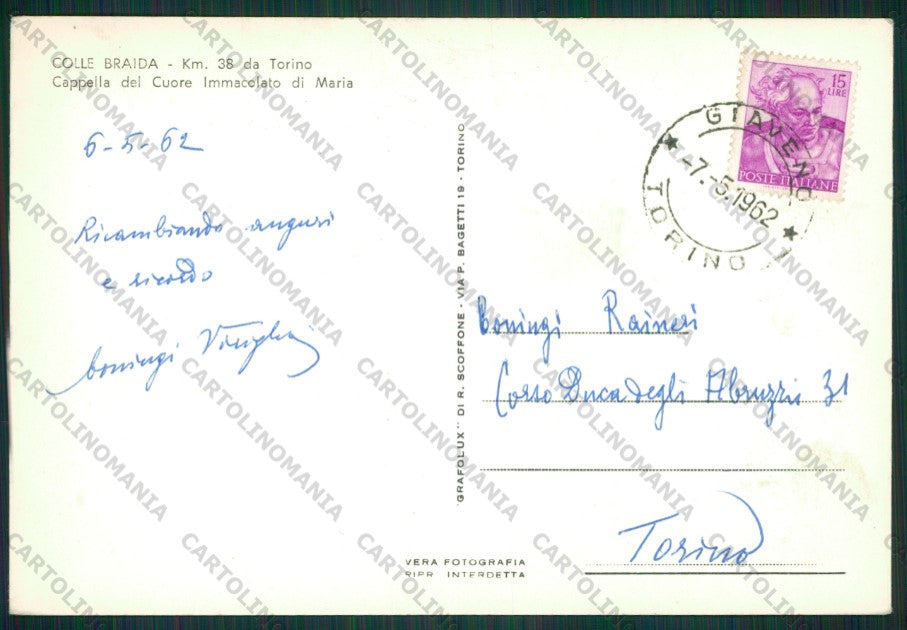 COLLE BRAIDA - Km. 38 da Torino
Cappella del Cuore Immacolato di Maria
6-5-62
Ricambiando auguri
e ricordo
coningi
"GRAFOLUX" DI R. SCOFFONE - VIA P. BAGETTI 119 - TORINO
VERA FOTOGRAFIA
RIPR. INTERDETTA
15
LIRE
POSTE ITALIANE
GIAVENO
-7.-5.1962
TORINO
Coningi Raineri
Corso Duca degli Abruzzi 31
Torino
CARTOLINOMANIA